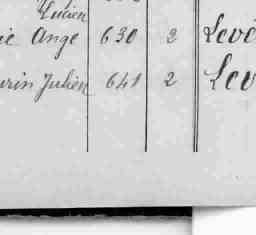 Lucien
ie Ange 630 2 Levé
urin Julien 641 2 Lev